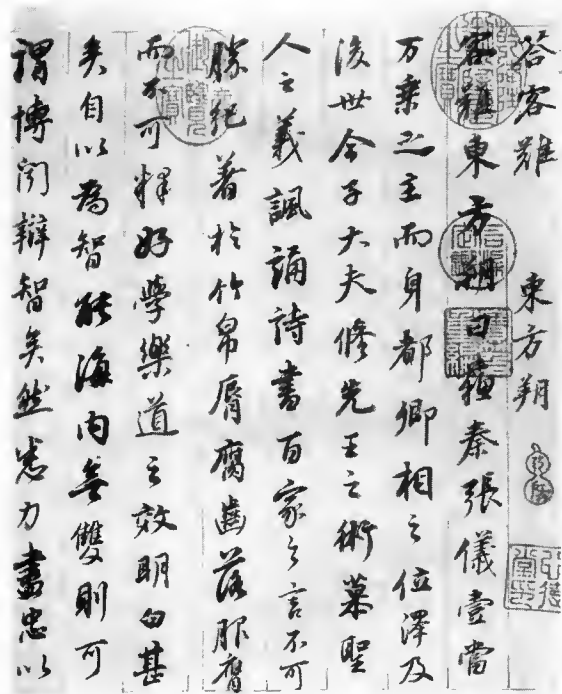 答客難 東方朔
客難東方朔曰蘓秦張儀壹當
万乘之主而身都卿相之位澤及
後世今子大夫修先王之術慕聖
人之義諷誦詩書百家之言不可
勝紀著於竹帛脣腐齒落服膺
而不可釋好學樂道之效明白甚
矣自以為智能海内無雙則可
謂博聞辯智矣然悉力盡忠以